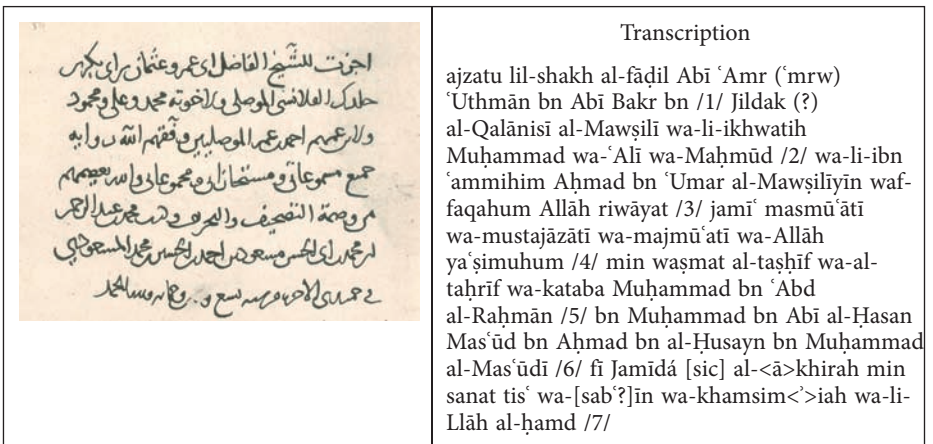 اجزت للشَّيخ الفاضل ابى عمرو عثمان بن ابى بكر بن
جلدك القلانسى الموصلى ولاخوته محمد وعلى ومحمود
ولابن عمهم احمد بن عمر الموصليين وفقهم الله رواية
جميع مسموعاتى ومستجازاتى ومجموعاتى والله يعصمهم
من وصمة التصحيف والتحريف وكتب محمد بن عبد الرحمن
بن محمد بن ابى الحسن مسعود بن احمد بن الحسين بن محمد المسعودى
فى الاخرة من سنة تسع ولله الحمد
Transcription
ajzatu lil-shakh al-fāḍil Abī ʿAmr (ʿmrw)
ʿUthmān bn Abī Bakr bn /1/ Jildak (?)
al-Qalānisī al-Mawṣilī wa-li-ikhwatih
Muḥammad wa-ʿAlī wa-Maḥmūd /2/ wa-li-ibn
ʿammihim Aḥmad bn ʿUmar al-Mawṣilīyīn waf-
faqahum Allāh riwāyat /3/ jamīʿ masmūʿātī
wa-mustajāzātī wa-majmūʿatī wa-Allāh
yaʿṣimuhum /4/ min waṣmat al-taṣḥīf wa-al-
taḥrīf wa-kataba Muḥammad bn ʿAbd
al-Raḥmān /5/ bn Muḥammad bn Abī al-Ḥasan
Masʿūd bn Aḥmad bn al-Ḥusayn bn Muḥammad
al-Masʿūdī /6/ fī Jamīdá [sic] al-<ā>khirah min
sanat tisʿ wa-[sabʿ?]īn wa-khamsim<ʾ>iah wa-li-
Llāh al-ḥamd /7/